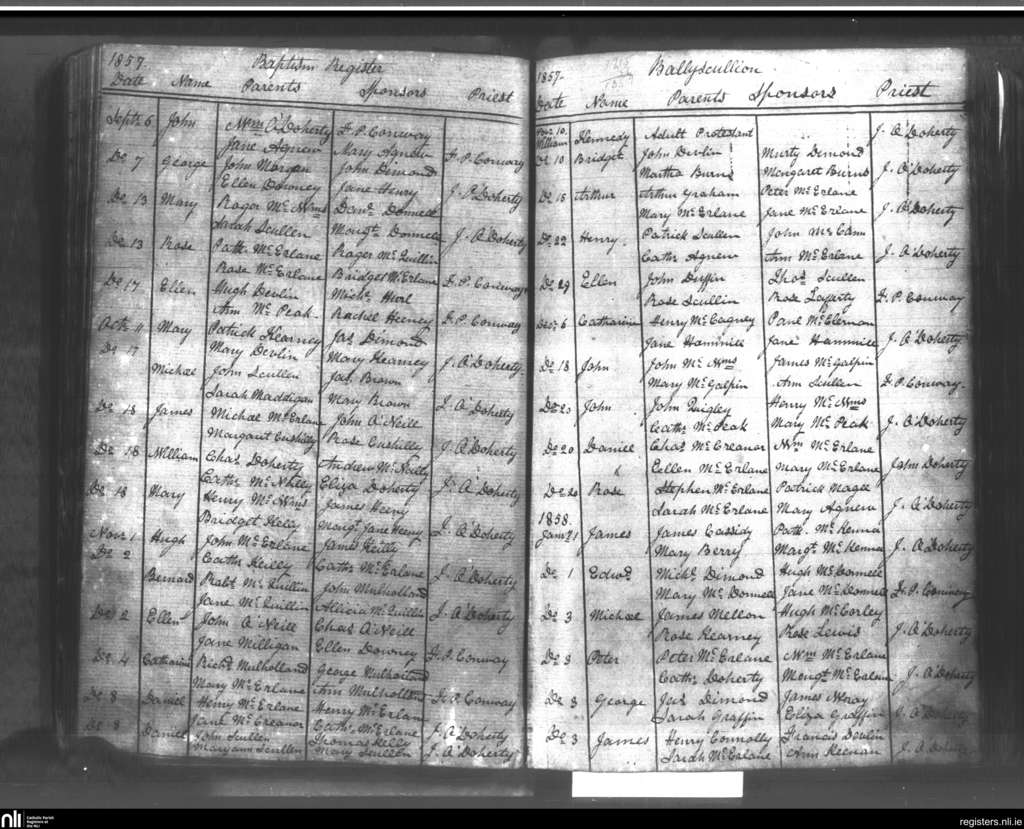 1857
Baptism Register
Date Name Parents Sponsors Priest
Septr 6 John Wm O'Doherty F. P. Conway
Jane Agnew Mary Agnew
Do 7 George John Morgan John Dimond F. P. Conway
Ellen Downey Jane Henry
Do 13 Mary Roger Mc Wms Donnell J. P. Doherty
Sarah Scullen Margt Donnell
Do 13 Rose Patk McErlane Roger McQuillin J. O'Doherty
Rose McErlane Bridget McErlane
Do 17 Ellen Hugh Devlin Michl F. P. Conway
Ann Mc Peak Rachel Heeney
Octr 11 Mary Patrick Kearney Jas Dimond F. P. Conway
Mary Devlin Mary Kearney
Do 17 Michael John Scullen Jas Brown J. O'Doherty
Sarah Maddigan Mary Brown
Do 18 James Michael McErlane John O'Neill J. O'Doherty
Margaret Cushilly Rose Cushilly
Do 18 William Chas Doherty Andrew J. O'Doherty
Cath Eliza Doherty
Do 18 Mary Henry Mc Wms James Heeny J. O'Doherty
Bridget Kelly Margt Jane Heeny
Novr 1 Hugh John McErlane James Reilly J. O'Doherty
Cath Reilly Cath McErlane
Do 2 Bernard Robt McQuillin John Mulholland J. O'Doherty
Jane McQuillin Alicia McQuillin
Do 2 Ellen John O'Neill Chas O'Neill J. O'Doherty
Jane Milligan Ellen Downey
Do 4 Catharine Richd Mulholland George Mulholland F. P. Conway
Mary McErlane Ann Mulholland
Do 8 Daniel Henry McErlane Henry McErlane F. P. Conway
Jane McCreanor Cath McErlane
Do 8 Daniel John Scullen Thomas Kelly J. O'Doherty
Maryann Scullen Mary Scullen J. O'Doherty
1857-
Ballyscullion
Date Name Parents Sponsors Priest
Novr 10 William Kennedy Adult Protestant J. O'Doherty
Do 10 Bridget John Devlin Murty Dimond
Martha Burns Margaret Burns J. O'Doherty
Do 15 Arthur Arthur Graham Peter McErlane
Mary McErlane Jane McErlane J. O'Doherty
Do 22 Henry Patrick Scullen John McCann
Cath Agnew Ann McErlane J. O'Doherty
Do 29 Ellen John Diffin Thos Scullen
Rose Scullin Rose Lafarty F. P. Conway
Decr 6 Catharine Henry McCagney McClernan
Jane Hammill Jane Hammill J. O'Doherty
Do 18 John John Mc Wms James McGalpin
Mary McGalpin Ann Scullen F. P. Conway
Do 20 John John Quigley Henry Mc Wms
Cath McPeak Mary McPeak J. O'Doherty
Do 20 Daniel Chas McCreanor Wm McErlane
Cellen McErlane Mary McErlane John Doherty
Do 20 Rose Stephen McErlane Patrick Magee
Sarah McErlane Mary Agnew J. O'Doherty
1858.
Jany 1 James James Cassidy Patk McKenna
Mary Berry Margt McKenna J. O'Doherty
Do 1 Edwd Michl Dimond Hugh McConnell
Mary McDonnell Jane McDonnell F. P. Conway
Do 3 Michael James Mellon Hugh McCorley
Rose Kearney Rose Lewis J. O'Doherty
Do 3 Peter Peter McErlane Wm McErlane
Cath Doherty Margt McErlane J. O'Doherty
Do 3 George Jas Dimond James Wray
Sarah Graffin Eliza Graffin J. O'Doherty
Do 3 James Henry Connolly Francis Devlin
Sarah McErlane Ann Keenan J. O'Doherty
nli Catholic Parish Registers at the NLI
registers.nli.ie